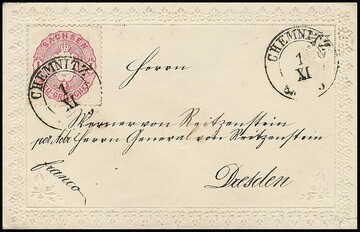 SACHSEN
CHEMNITZ
1
XI
CHEMNITZ
1
XI
Herrn
Werner von Reitzenstein
Herrn General von Reitzenstein
Dresden
franco